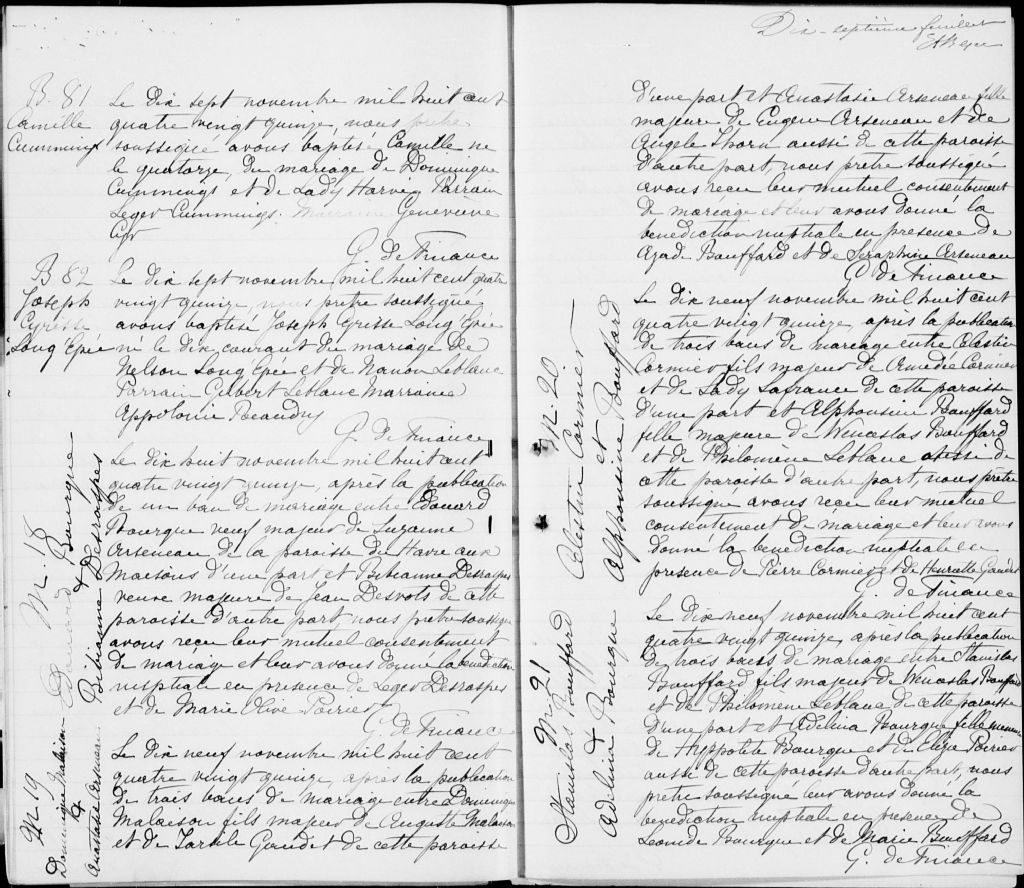 B. 81
Camille
Cummings
Le dix sept novembre mil huit cent
quatre vingt quinze, nous prêtre
soussigné avons baptisé Camille né
le quatorze, du mariage de Dominique
Cummings et de Lady Harvey Parrain
Leger Cummings. Marraine Geneviève
G. de Finance
B 82
Joseph
Cyrisse
Long'Epée
Le dix sept novembre mil huit cent quatre
vingt quinze, nous prêtre soussigné
avons baptisé Joseph Cyrisse Long'Epée
né le dix courant du mariage de
Nelson Long Epée et de Nanon Leblanc
Parrain Gilbert Leblanc Marraine
Appolonie Beaudry
G. de Finance
M. 18
Edouard & Bourgue
Bibianne Desraspes
Le dix huit novembre mil huit cent
quatre vingt quinze, après la publication
de un ban de mariage entre Edouard
Bourgue veuf majeur de Suzanne
Arseneau de la paroisse du Havre aux
Maisons d'une part et Bibeanne Desraspes
veuve majeure de Jean Desvots de cette
paroisse d'autre part nous prêtre soussigné
avons recu leur mutuel consentement
de mariage et leur avons donné la bénédiction
nuptiale en presence de Leger Desraspes
et de Marie Olive Poirier
G. de Finance
M 19
Dominique Malaison
&
Anastasie Arseneau
Le dix neuf novembre mil huit cent
quatre vingt quinze, après la publication
de trois bans de mariage entre Dominique
Malaison fils majeur de Auguste Malaison
et de Tarsile Gaudet de cette paroisse
Dix-septième feuillet
d'une part et Anastasie Arseneau fille
majeure de Eugène Arseneau et de
Angele Thorn aussi de cette paroisse
d'autre part, nous prêtre soussigné
avons recu leur mutuel consentement
de mariage et leur avons donné la
benediction nuptiale en presence de
Agade Bouffard et de Seraphine Arseneau
G. de Finance
M. 20
Celestin Cormier
et
Alphonsine Bouffard
Le dix neuf novembre mil huit cent
quatre vingt quinze, après la publication
de trois bans de mariage entre Celestin
Cormier fils majeur de Amédée Cormier
et de Lady Lafrance de cette paroisse
d'une part et Alphonsine Bouffard
fille majeure de Wenceslas Bouffard
et de Philomene Leblanc aussi de
cette paroisse d'autre part, nous prêtre
soussigné avons recu leur mutuel
consentement de mariage et leur avons
donné la benediction nuptiale en
presence de Pierre Cormier et de Henriette Gaudet
G. de Finance
M 21
Stanislas Bouffard
&
Adelina Bourgue
Le dix neuf novembre mil huit cent
quatre vingt quinze, après la publication
de trois bans de mariage entre Stanislas
Bouffard fils majeur de Wenceslas Bouffard
et de Philomene Leblanc de cette paroisse
d'une part et Adelina Bourgue fille mineure
de Hyppolite Bourgue et de Elize Poirier
aussi de cette paroisse d'autre part, nous
prêtre soussigné leur avons donné la
benediction nuptiale en presence de
Leonide Bourgue et de Marie Bouffard
G. de Finance